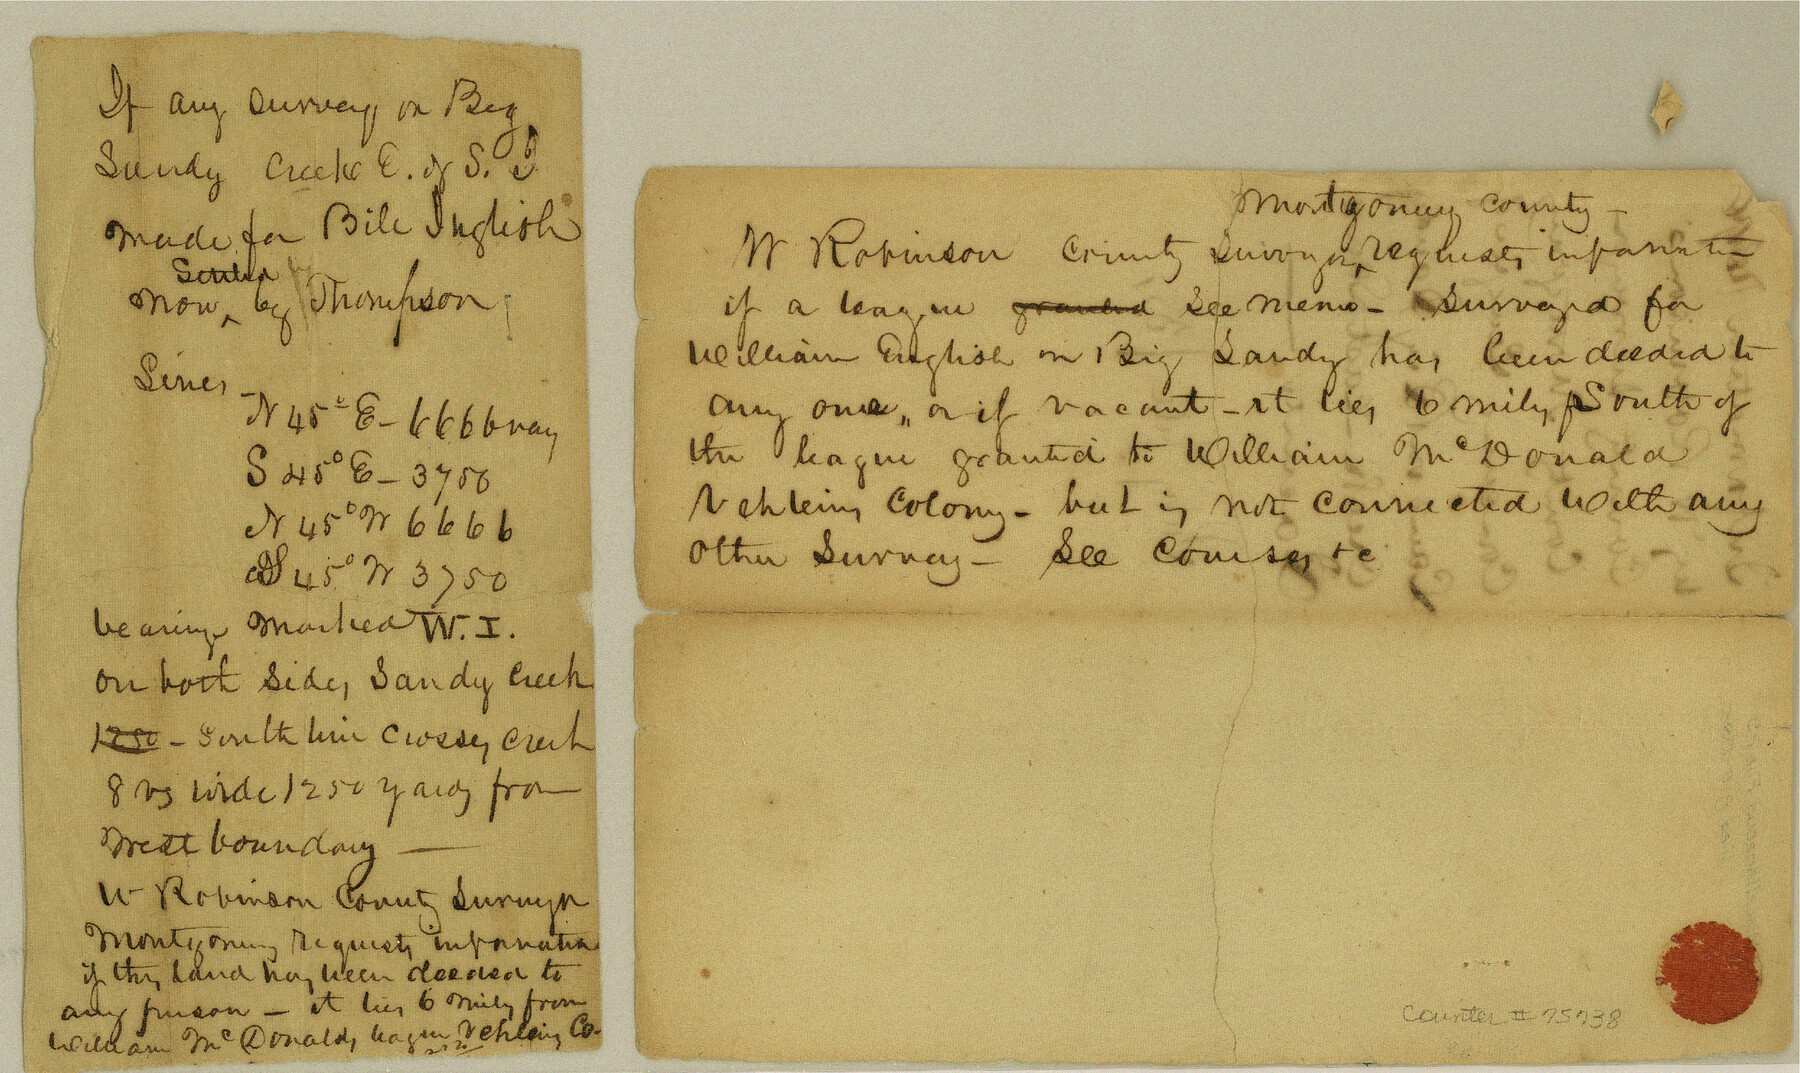 If any survey on Big
Sandy Creek E. of S. J
made for Bile Inglish
Settled
Now by Thompson
Lines -
N 45° E - 6666 vars
S 45° E - 3750
N 45° W 6666
S 45° W 3750
bearings marked W. I.
on both sides Sandy Creek
1250 - South line crosses creek
8 vs wide 1250 yards from
West boundary —
W Robinson County Surveyor
Montgomery requests information
if this land has been deeded to
any person - it lies 6 miles from
William McDonalds league Vehleins Co-
Montgomery County -
W Robinson County Surveyor, requests information
if a league granted see memo - surveyed for
William English on Big Sandy has been deeded to
any one, or if vacant - it lies 6 miles South of
the league granted to William McDonald
Vehleins Colony - but is not connected with any
other Survey - See Courses &c
Counter # 75738